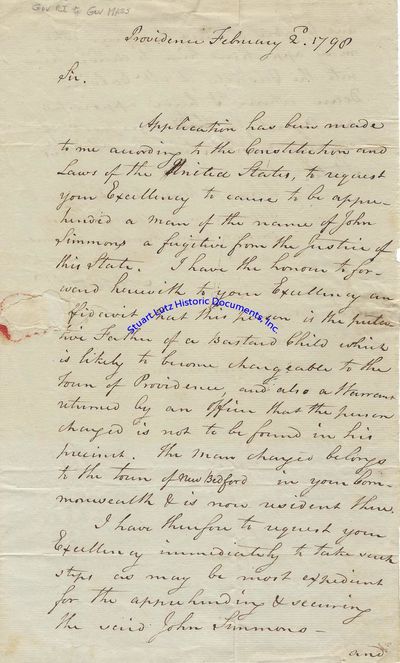 Gov RI to Gov Mass
Providence February 2d. 1798
Sir.
Application has been made
to me acording to the Constitution and
Laws of the United States, to request
your Excellency to cause to be appre-
hended a man of the name of John
Simmons a fugitive from the justice of
this State. I have the honour to for-
ward herewith to your Excellency an
affidavit that this person is the puta-
tive Father of a Bastard Child which
is likely to become chargeable to the
Town of Providence and also a Warrant
returned by an officer that the person
charged is not to be found in his
precinct. The man charged belongs
to the town of New Bedford in your Com-
monwealth & is now resident there.
I have therefore to request your
Excellency immediately to take such
steps as may be most expedient
for the apprehending & securing
the said John Simmons —
and
Stuart Lutz Historic Documents, Inc.